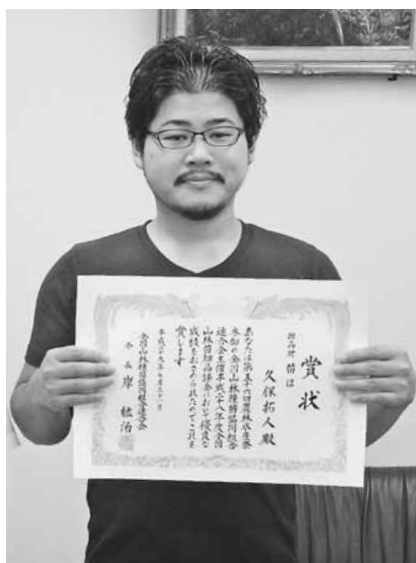 賞状
出品財 苗ほ
久保拓人殿
あなたは第五十六回農林水産祭
参加の全国山林種苗協同組合
連合会主催平成二十八年度全国
山林苗畑品評会において優良な
成績をおさめられたのでこれを
賞します
平成二十九年七月三十一日
全国山林種苗協同組合連合会
会長 岸 紘治